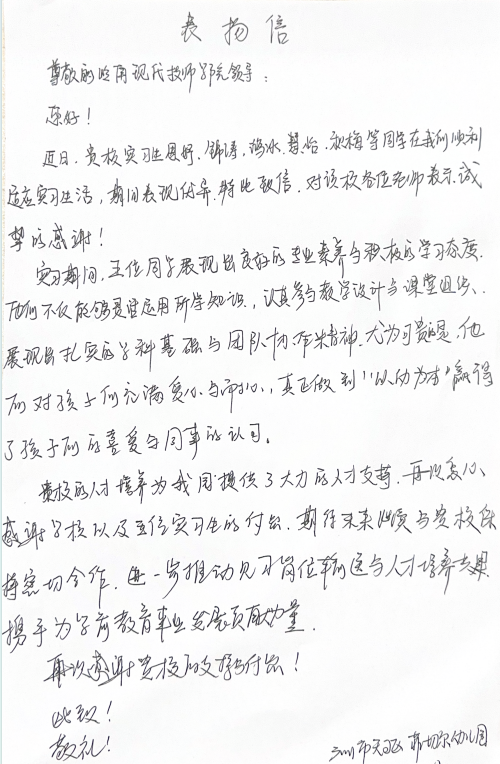 表扬信
尊敬的 现代技师学院领导：
您好！
近日，贵校实习生恩妤、锦涛、 冰、慧怡、 梅等同学在我们顺利
适应实习生活，期间表现优异，特此致信，对该校各位老师表示诚
挚的感谢！
实习期间，五位同学展现出良好的专业素养与积极的学习态度.
他们不仅能够灵活运用所学知识，认真参与教学设计与课堂组织、
展现出扎实的学科基础与团队协作精神.尤为可贵的是，他
们对孩子们充满爱心与耐心，真正做到"以幼为本"赢得
了孩子们的喜爱与同事的认可。
贵校的人才培养为我园提供了大力的人才支持.再次衷心
感谢学校以及五位实习生的付出.期待未来继续与贵校保
持密切合作.进一步推动见习岗位输送与人才培养
携手为学前教育事业发展贡献力量.
再次感谢贵校的支持与付出！
此致！
敬礼！
市天 幼儿园